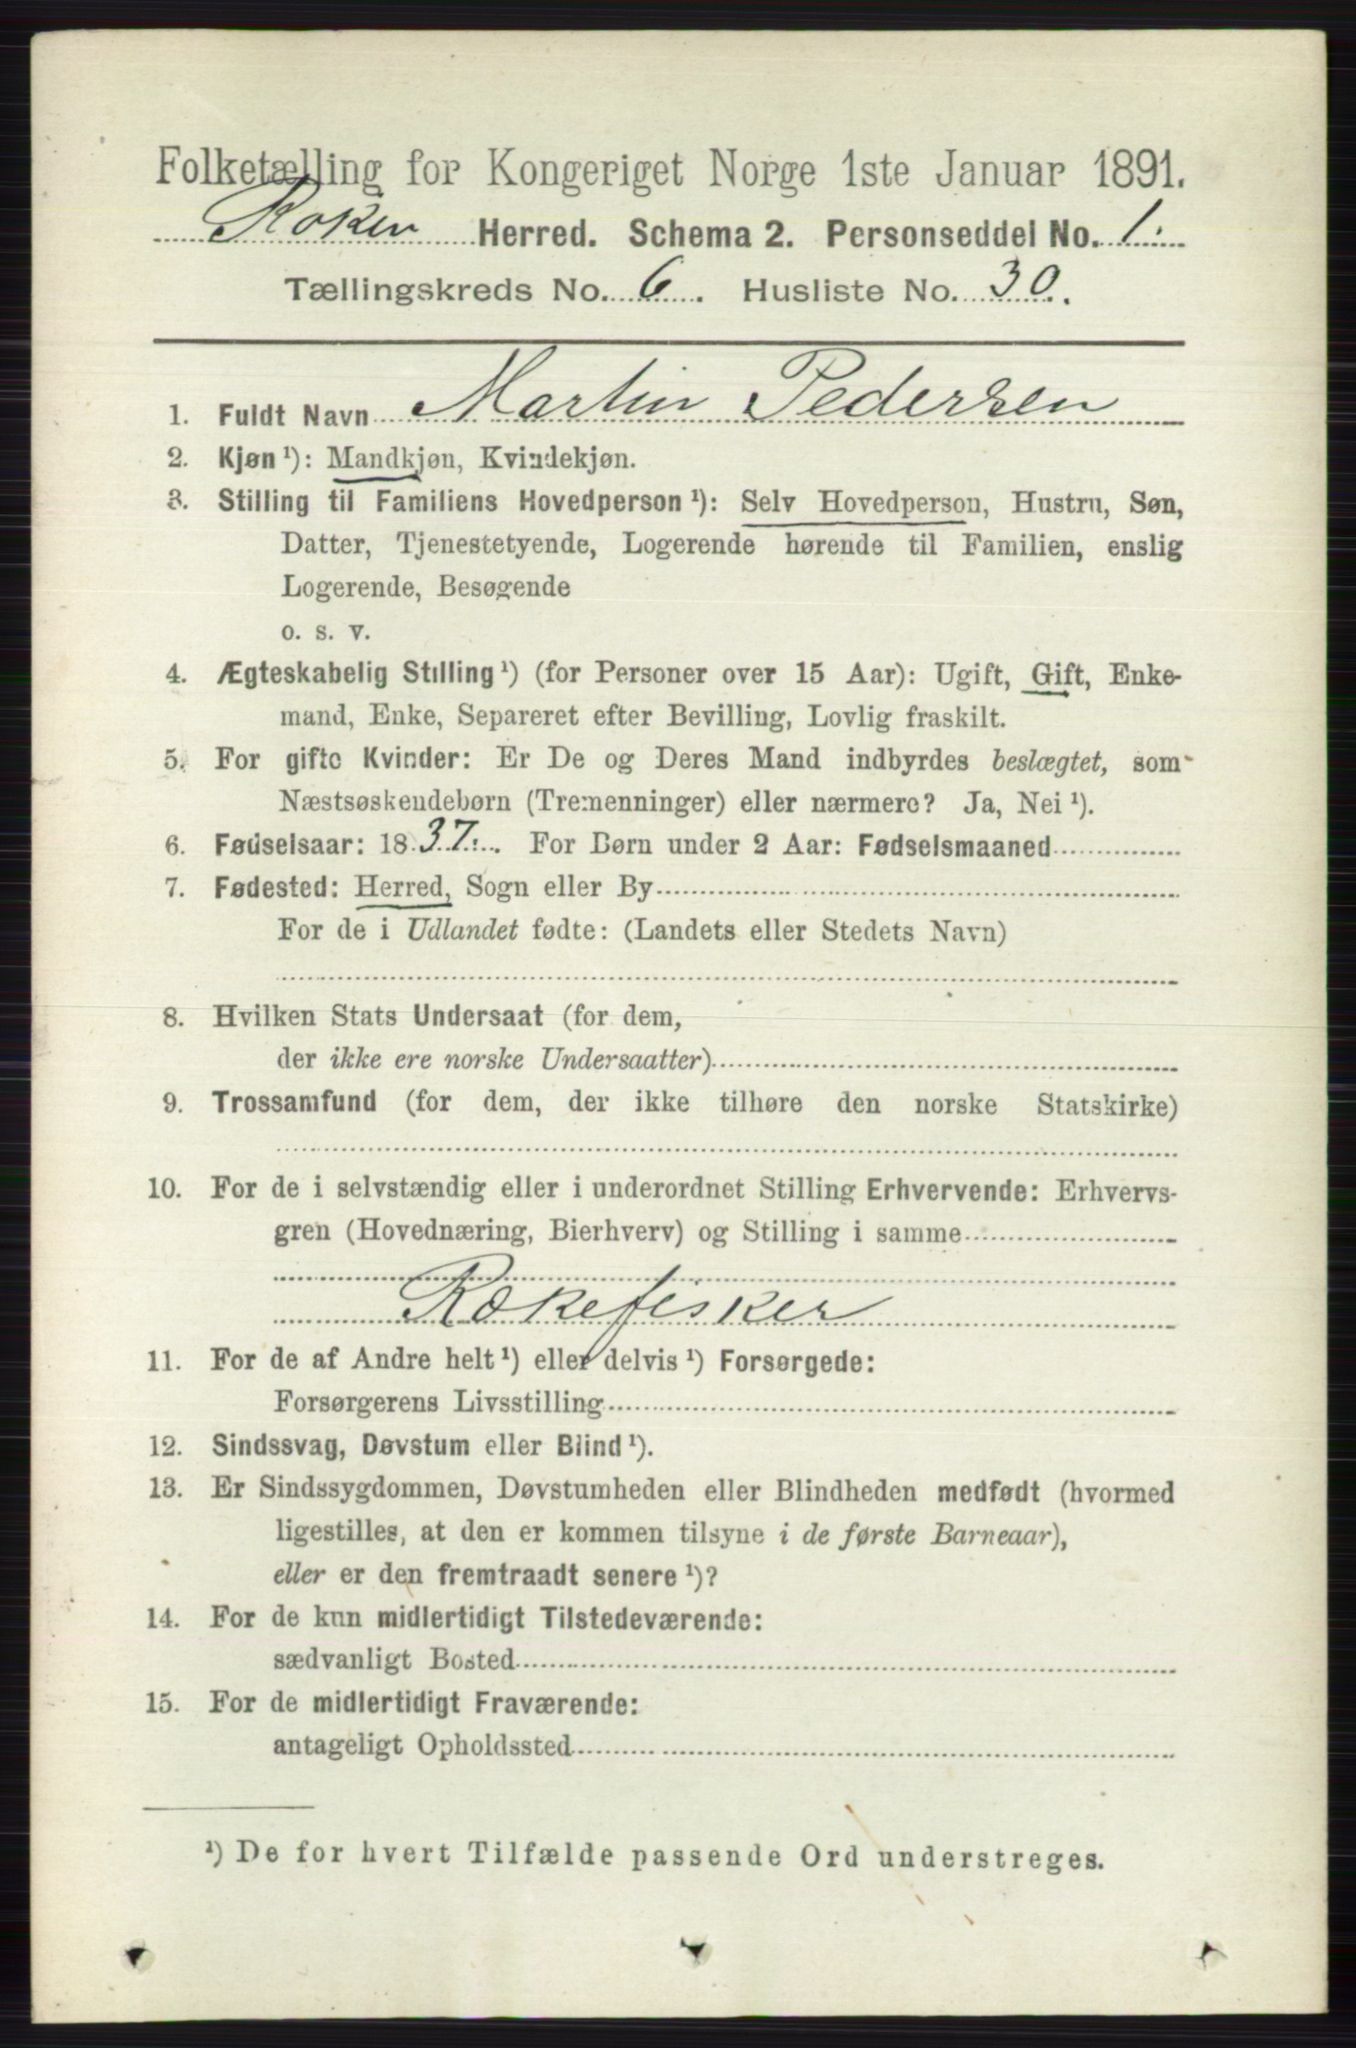 Folketælling for Kongeriget Norge 1ste Januar 1891.
Røken Herred. Schema 2. Personseddel No. 1.
Tællingskreds No. 6. Husliste No. 30.
1. Fuldt Navn Martin Pedersen
2. Kjøn ¹): Mandkjøn, Kvindekjøn.
3. Stilling til Familiens Hovedperson ¹): Selv Hovedperson, Hustru, Søn,
Datter, Tjenestetyende, Logerende hørende til Familien, enslig
Logerende, Besøgende
o. s. v.
4. Ægteskabelig Stilling ¹) (for Personer over 15 Aar): Ugift, Gift, Enke-
mand, Enke, Separeret efter Bevilling, Lovlig fraskilt.
5. For gifte Kvinder: Er De og Deres Mand indbyrdes beslægtet, som
Næstsøskendebørn (Tremenninger) eller nærmere? Ja, Nei ¹).
6. Fødselsaar: 1837. For Børn under 2 Aar: Fødselsmaaned
7. Fødested: Herred, Sogn eller By
For de i Udlandet fødte: (Landets eller Stedets Navn)
8. Hvilken Stats Undersaat (for dem,
der ikke ere norske Undersaatter)
9. Trossamfund (for dem, der ikke tilhøre den norske Statskirke)
10. For de i selvstændig eller i underordnet Stilling Erhvervende: Erhvervs-
gren (Hovednæring, Bierhverv) og Stilling i samme
Rækefisker
11. For de af Andre helt ¹) eller delvis ¹) Forsørgede:
Forsørgerens Livsstilling
12. Sindssvag, Døvstum eller Blind ¹).
13. Er Sindssygdommen, Døvstumheden eller Blindheden medfødt (hvormed
ligestilles, at den er kommen tilsyne i de første Barneaar),
eller er den fremtraadt senere ¹)?
14. For de kun midlertidigt Tilstedeværende:
sædvanligt Bosted
15. For de midlertidigt Fraværende:
antageligt Opholdssted
¹) De for hvert Tilfælde passende Ord understreges.